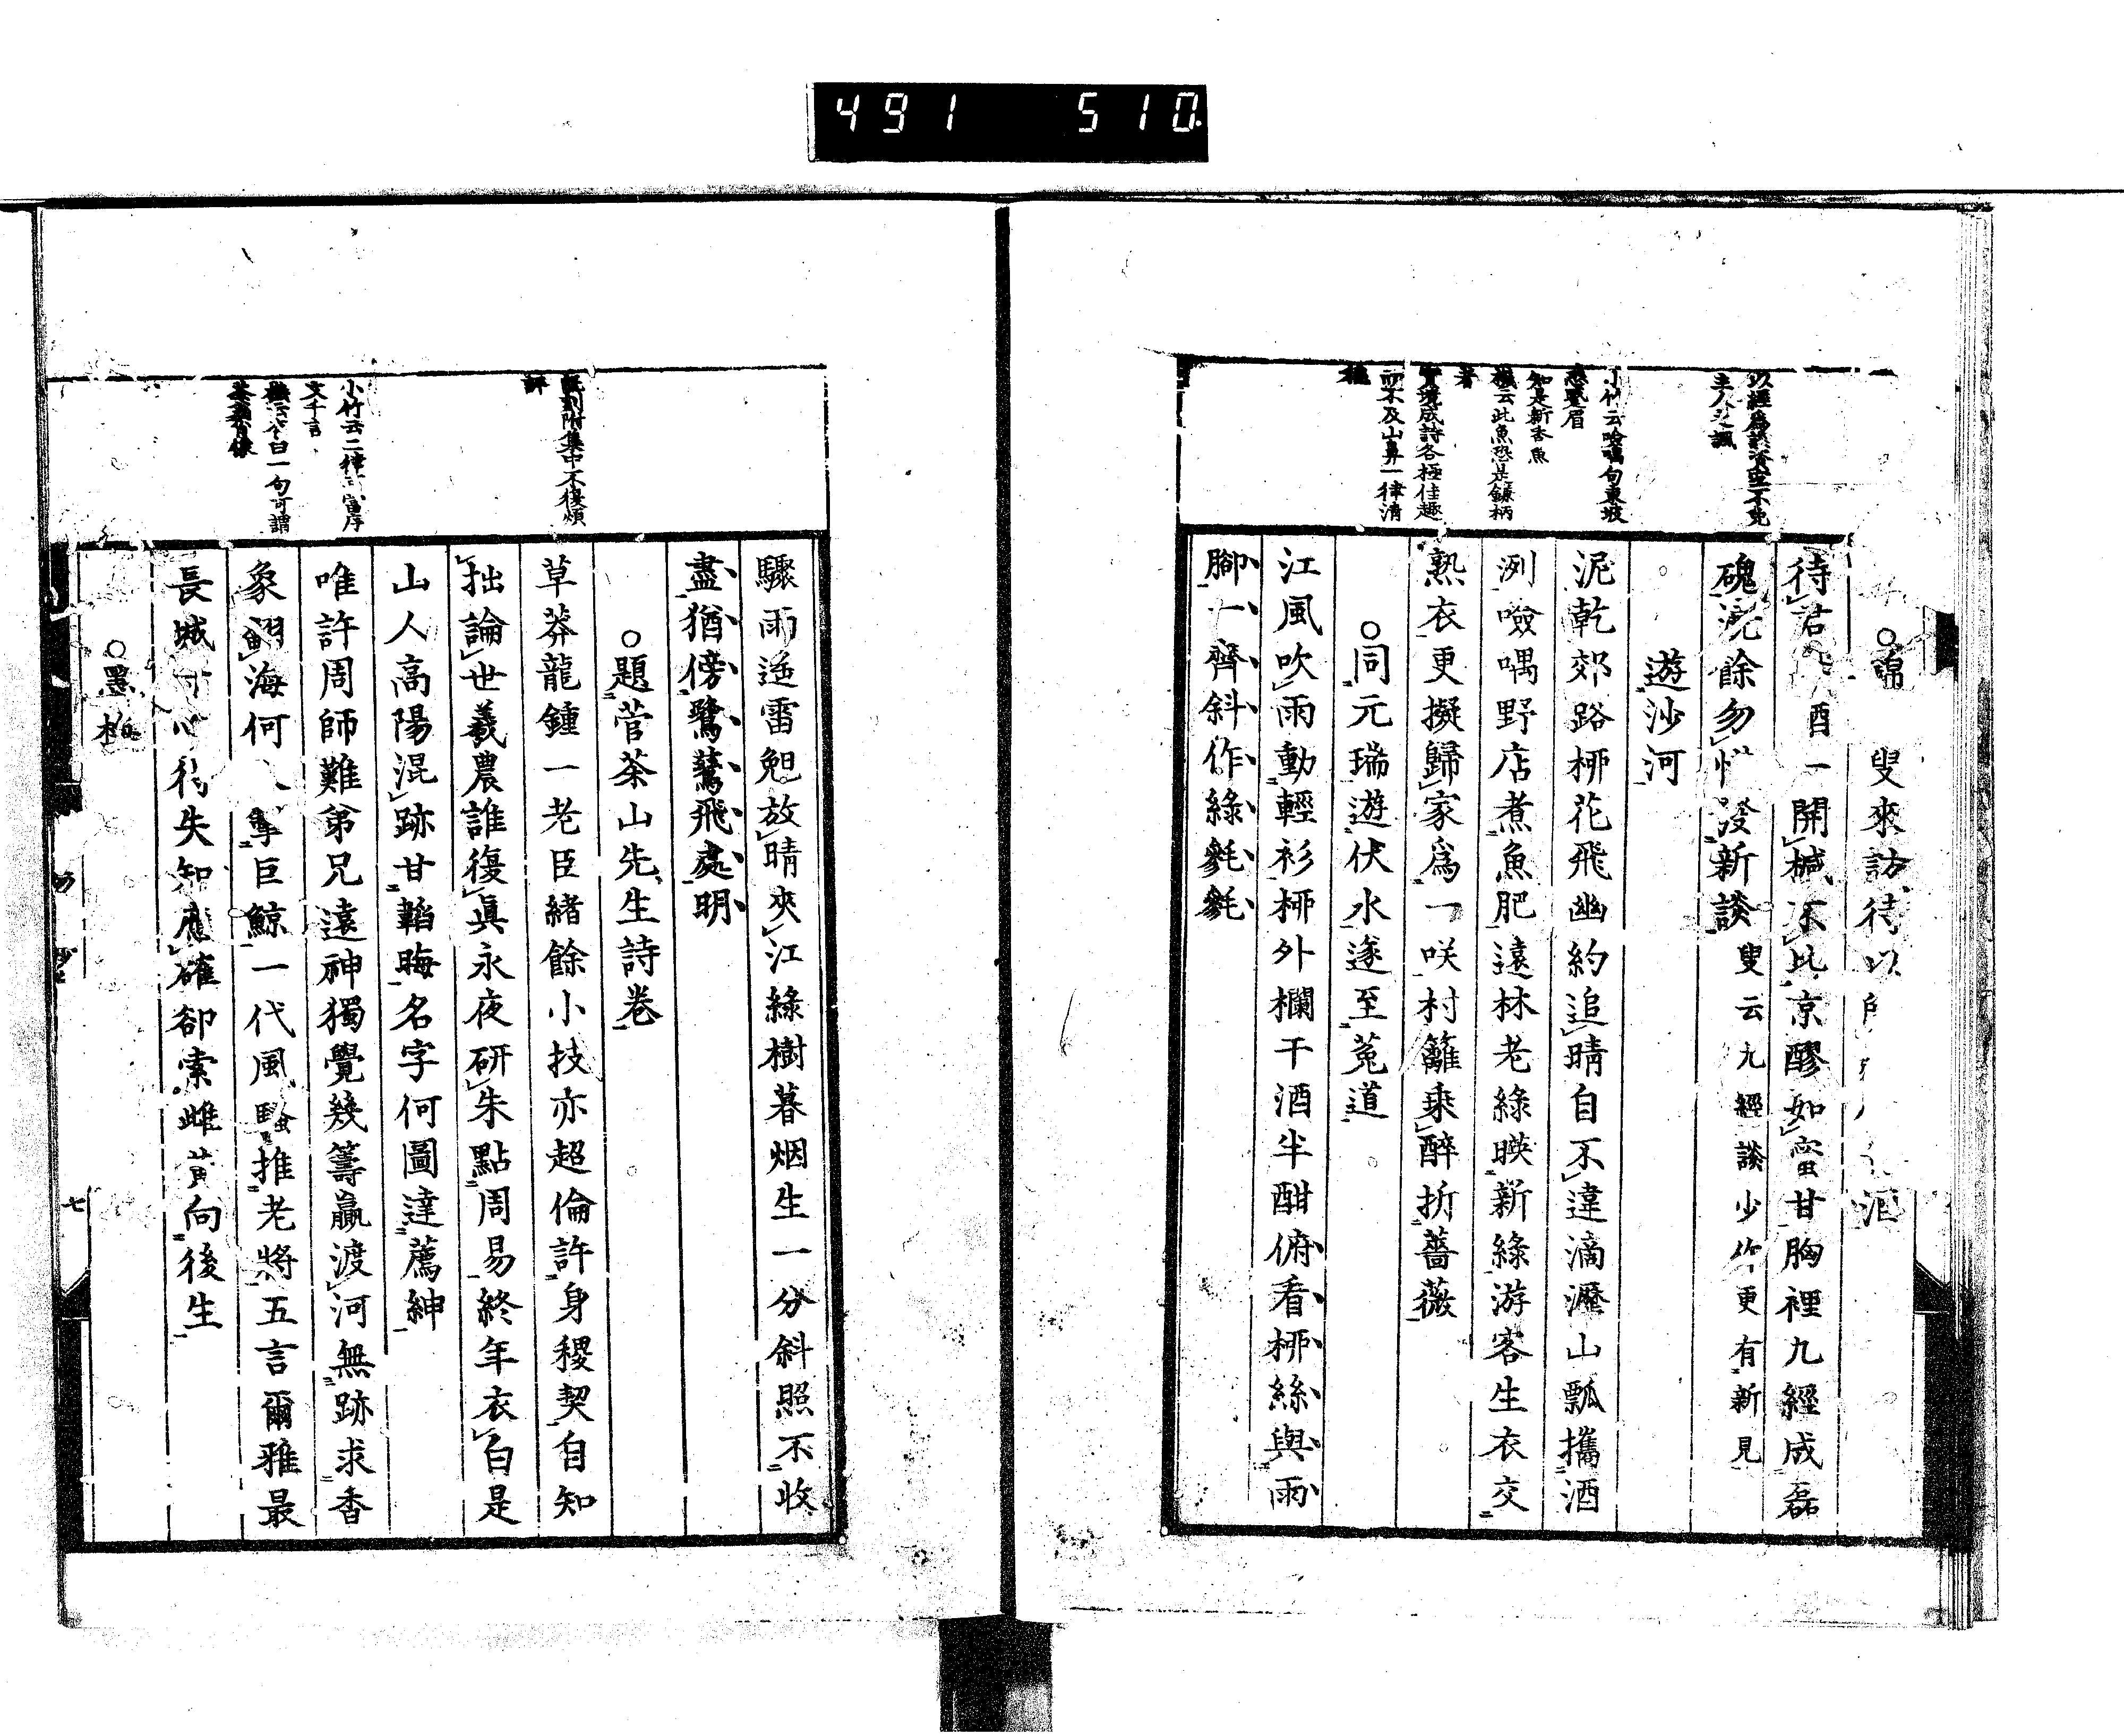 491 510
以經爲談資聖不免
小竹云噞喁句東坡
知是新香魚
檝云此魚恐是鐮柄
者
實境成詩各極佳趣
而不及山鼻一律淸
叟來訪待以酒
待君酒一開椷不比京醪如蜜甘胸裡九經成磊
磈澆餘勿惜發新談叟云九經談少作更有新見
遊沙河
泥乾郊路桺花飛幽約追晴自不違滴瀝山瓢攜酒
洌噞喁野店煮魚肥遠林老綠暎新綠游客生衣交
熟衣更擬歸家爲一咲村籬乘醉折薔薇
○同元瑞遊伏水遂至菟道
江風吹雨動輕衫桺外欄干酒半酣俯看桺絲與雨
腳一齊斜作綠毿毿
旣刻附集中不復煩
評
小竹云二律可當序
文千言
一句可謂
茶翁肖像
驟雨迯雷兜放晴夾江綠樹暮烟生一分斜照不收
盡猶傍鷺鷥飛處明
○題菅茶山先生詩卷
草莽龍鍾一老臣緒餘小技亦超倫許身稷契自知
拙論世羲農誰復眞永夜研朱點周易終年衣白是
山人高陽混跡甘韜晦名字何圖達薦紳
唯許周師難弟兄遠神獨覺幾籌贏渡河無跡求香
象翻海何人掣巨鯨一代風騷推老將五言爾雅最
長城寸心得失知應確卻索雌黃向後生
○墨梅
七